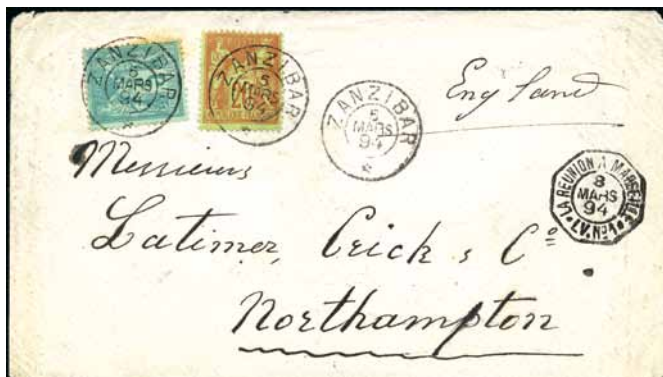 ZANZIBAR
5
MARS
94
ZANZIBAR
5
MARS
94
ZANZIBAR
5
MARS
94
England
LA REUNION A MARSEILLE
8
MARS
94
L.V.Nº1
Messieurs
Latimer, Crick & Cº
Northampton